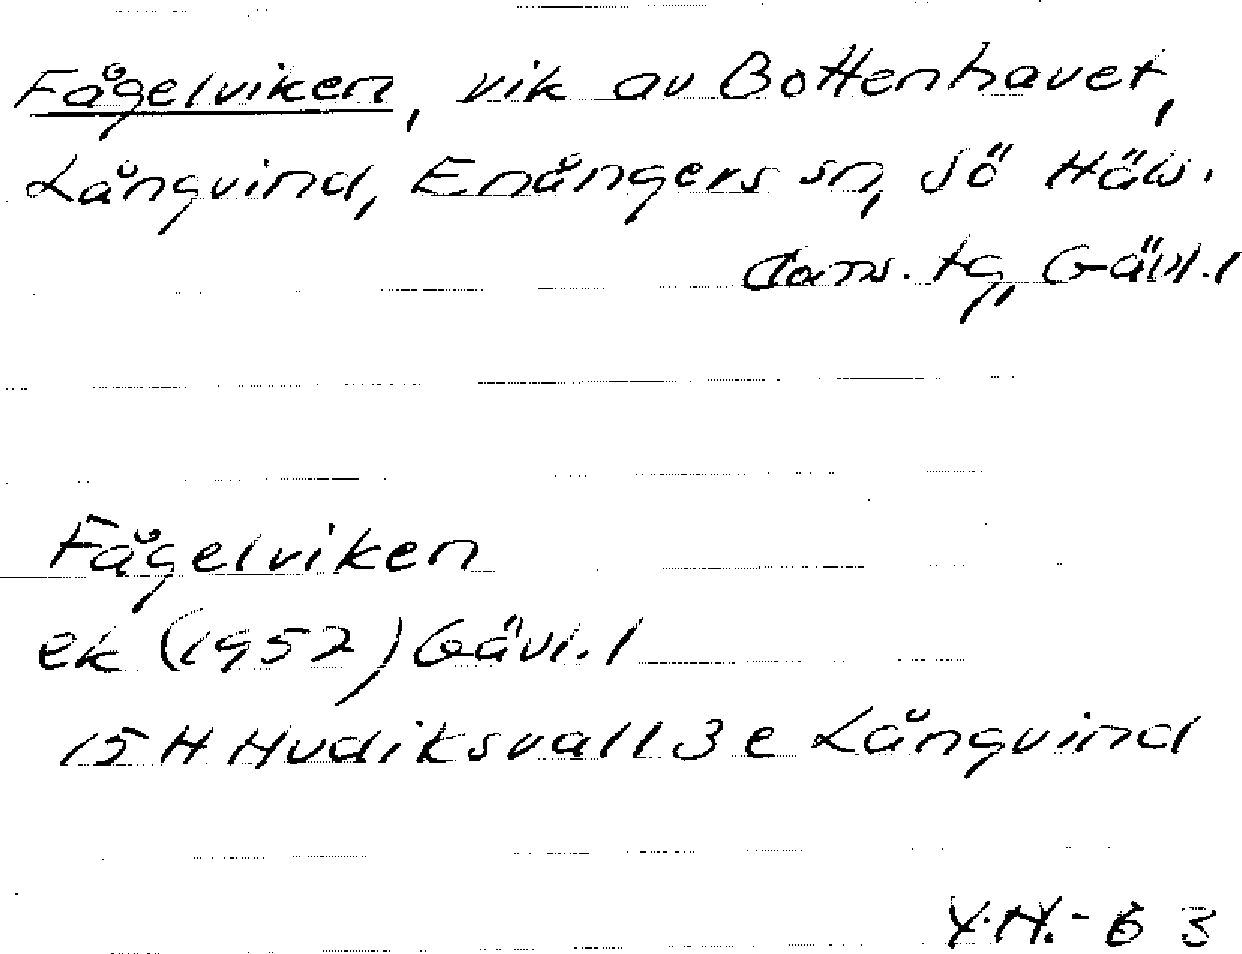 Fågelviken, vik av Bottenhavet,
Långvind, Enångers sn, Sö Häls.
tg, Gävl. l
Fågelviken
ek (1952) Gävl. l
15 H Hudiksvall 3 e Långvind
Y.H.-63